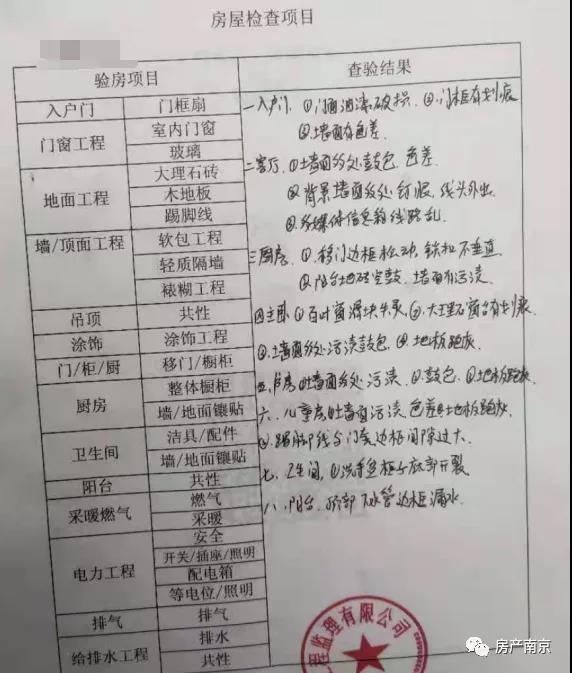 房屋检查项目
验房项目 查验结果
入户门 门框扇 一入户门、①门面油漆破损、②门框有划痕
门窗工程 室内门窗 ③墙面有色差
玻璃
地面工程 大理石砖 二客厅、①墙面多处鼓包、色差
木地板 ②背景墙面多处钉眼、线头外出
踢脚线 ③多媒体信息箱线路乱
墙/顶面工程 软包工程
轻质隔墙 三厨房、①移门边框松动、铁扣不垂直
裱糊工程 ②阳台地砖空鼓、墙面有污渍
吊顶 共性 四主卧①百叶窗滑块失灵、②大理石窗台有划痕
涂饰 涂饰工程 ③墙面多处污渍鼓包、④地板起灰
门/柜/厨 移门/橱柜
厨房 整体橱柜 墙面多处污渍、②鼓包、③地板起灰
墙/地面镶贴 六、儿童房 墙面有污渍 色差 地板起灰
卫生间 洁具/配件 踢脚线与门套边框间隙过大
墙/地面镶贴
阳台 共性 七、卫生间、①洗手盆柜与底部开裂
采暖燃气 燃气 八、阳台、顶部 水管边框漏水
采暖
电力工程 安全
开关/插座/照明
配电箱
等电位/照明
排气 排气
给排水工程 排水
共性
程监理有限公司
房产南京